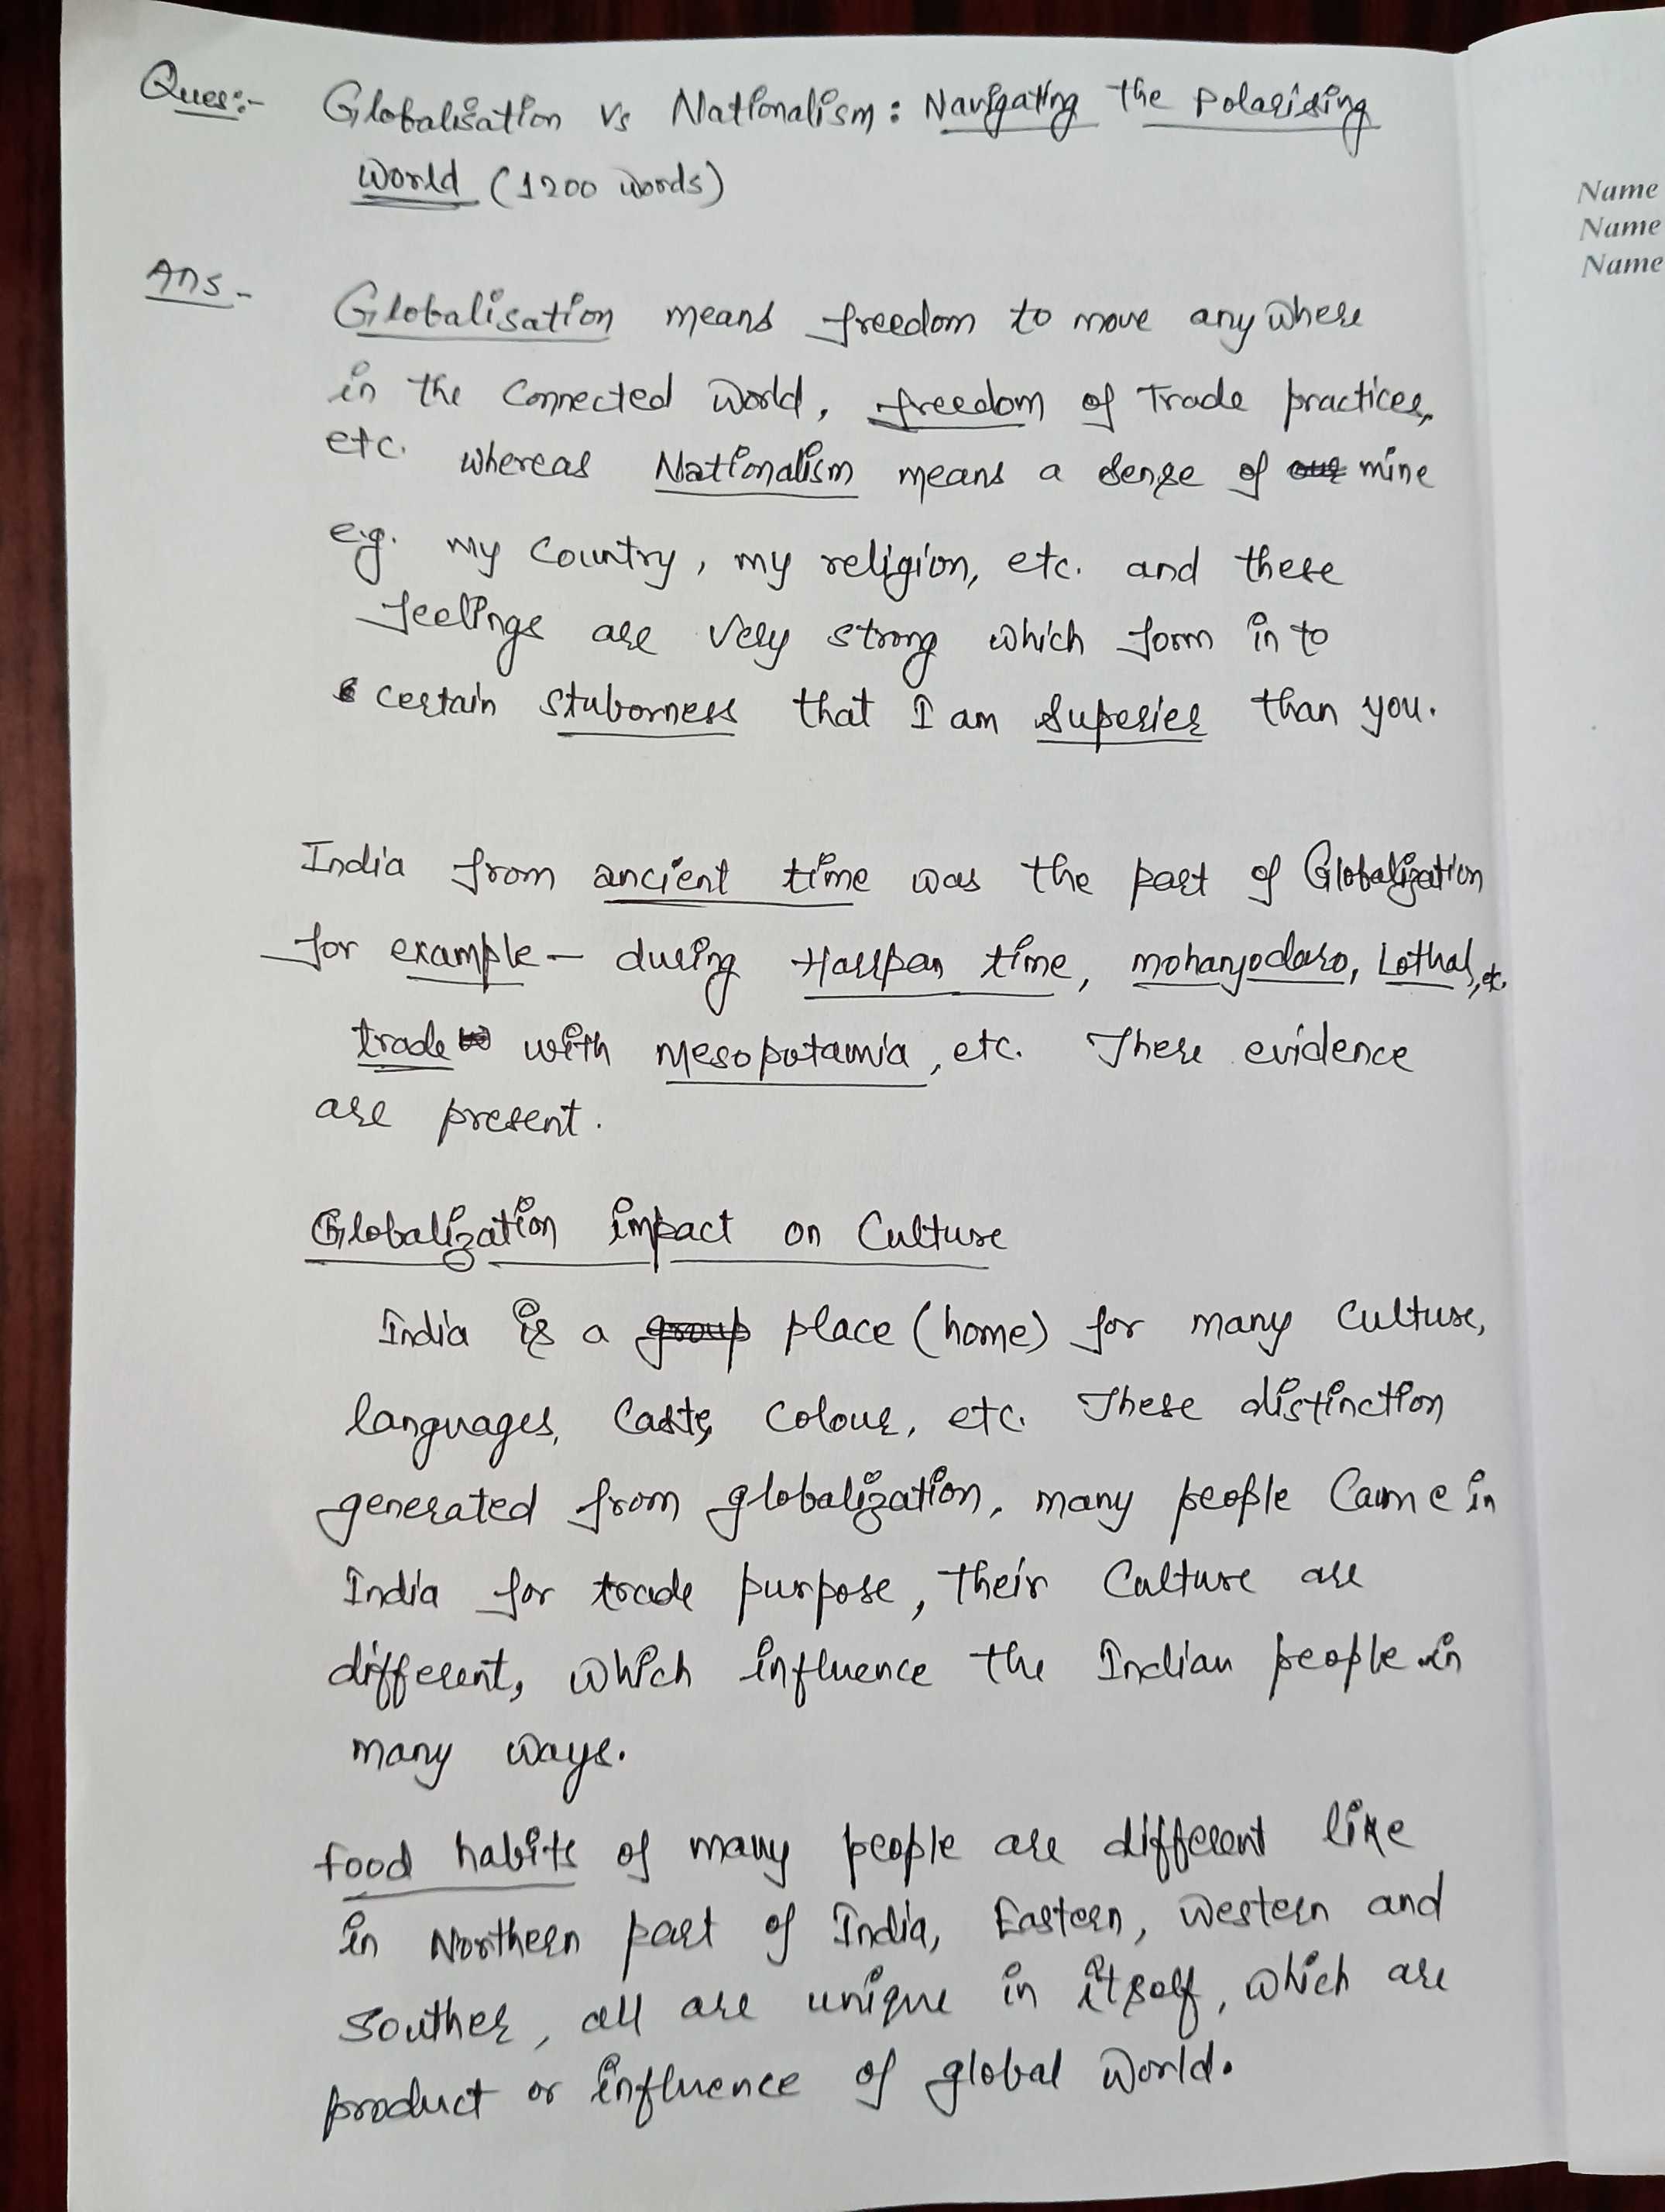 Ques:- Globalisation vs Nationalism: Navigating the Polarising
World (1200 words)
Name
Name
Name
Ans- Globalisation means freedom to move anywhere
in the connected world, freedom of Trade practices,
etc. whereas Nationalism means a sense of mine
e.g. my country, my religion, etc. and these
feelings are very strong which form in to
certain stuborness that I am Superier than you.
India from ancient time was the part of Globalization
for example - during Harrpan time, mohanjodaro, Lothal, etc.
trade with Mesopotamia, etc. There evidence
are present.
Globalization impact on Culture
India is a place (home) for many Culture,
languages, Caste, Colour, etc. These distinction
generated from globalization, many people Came in
India for trade purpose, their Culture are
different, which influence the Indian people in
many ways.
food habits of many people are different like
in Northern part of India, Eastern, Western and
Souther, all are unique in itself, which are
product or influence of global World.